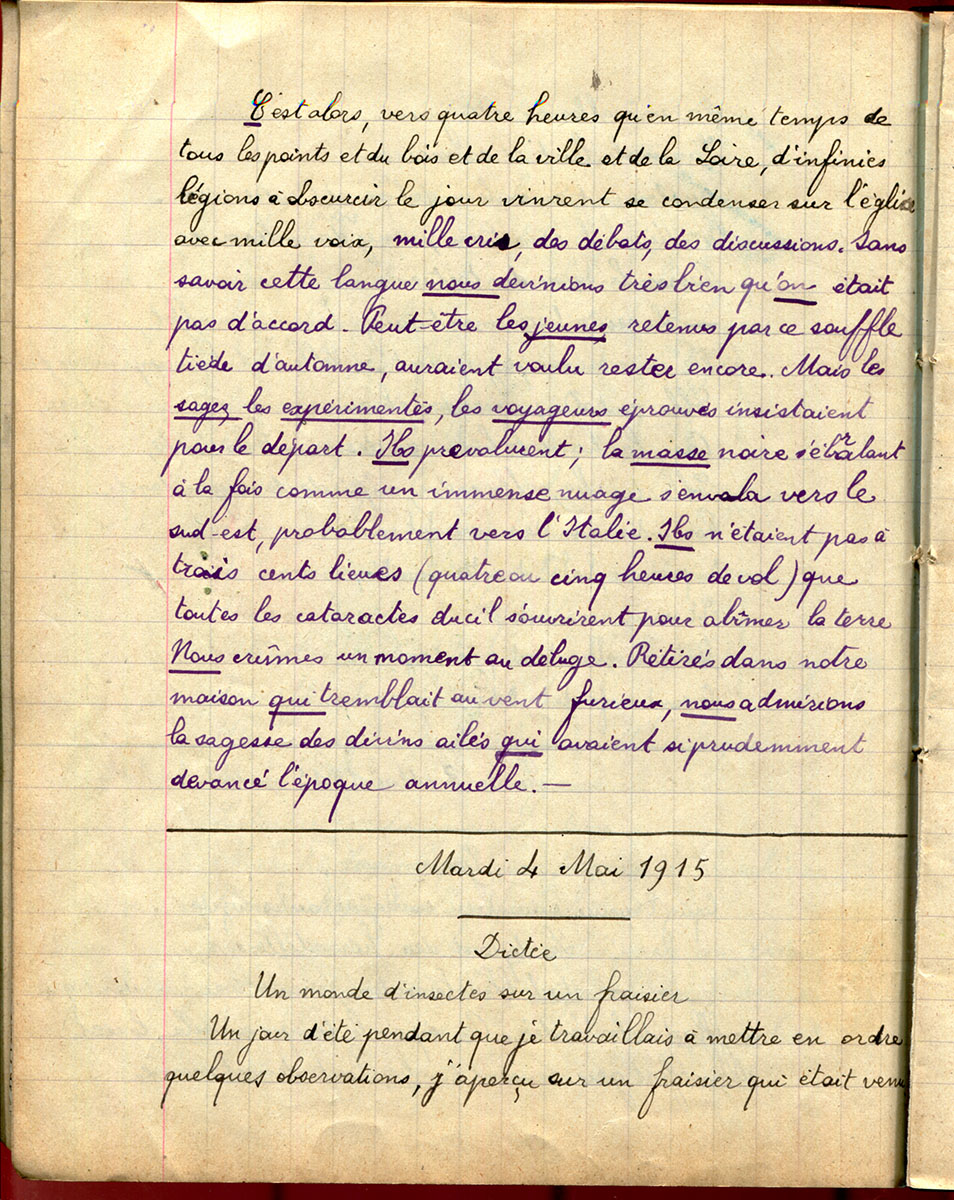 C'est alors, vers quatre heures qu'en même temps de
tous les points et du bois et de la ville et de la Loire, d'infinies
légions à obscurcir le jour vinrent se condenser sur l'église
avec mille voix, mille cris, des débats, des discussions. Sans
savoir cette langue nous devinions très bien qu'on était
pas d'accord. Peut-être les jeunes retenus par ce souffle
tiède d'automne, auraient voulu rester encore. Mais les
sages, les expérimentés, les voyageurs éprouvés insistaient
pour le départ. Ils prévalurent ; la masse noire s'ébralant
à la fois comme un immense nuage s'envola vers le
sud-est, probablement vers l'Italie. Ils n'étaient pas à
trois cents lieues (quatre ou cinq heures de vol) que
toutes les cataractes du cil s'ouvrirent pour abîmer la terre
Nous crûmes un moment au déluge. Retirés dans notre
maison qui tremblait au vent furieux, nous admirions
la sagesse des divins ailés qui avaient si prudemment
devancé l'époque annuelle. —
Mardi 4 Mai 1915
Dictée
Un monde d'insectes sur un fraisier
Un jour d'été pendant que je travaillais à mettre en ordre
quelques observations, j'aperçu sur un fraisier qui était venu